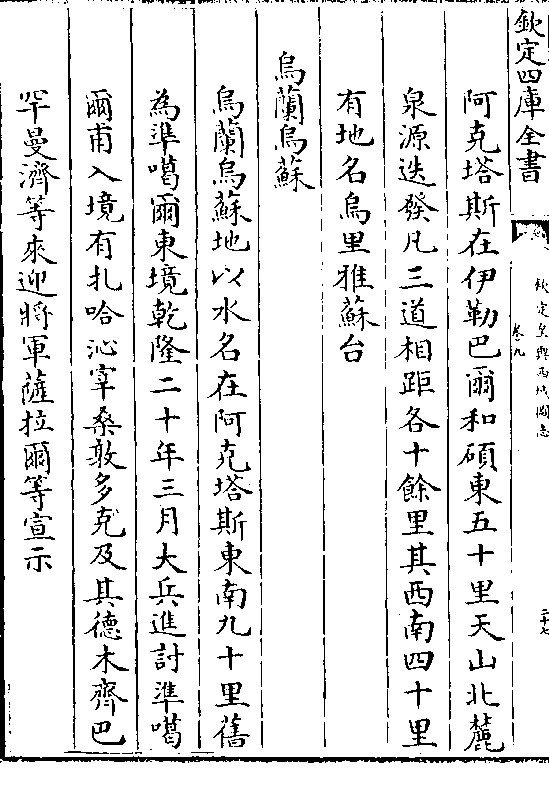 欽定四庫全書
欽定皇輿西域圖志
卷九
二十七
阿克塔斯在伊勒巴爾和碩東五十里天山北麓
泉源迭發凡三道相距各十餘里其西南四十里
有地名烏里雅蘇台
烏蘭烏蘇
烏蘭烏蘇地以水名在阿克塔斯東南九十里舊
為準噶爾東境乾隆二十年三月大兵進討準噶
爾甫入境有扎哈沁宰桑敦多克及其德木齊巴
罕曼濟等來迎將軍薩拉爾等宣示